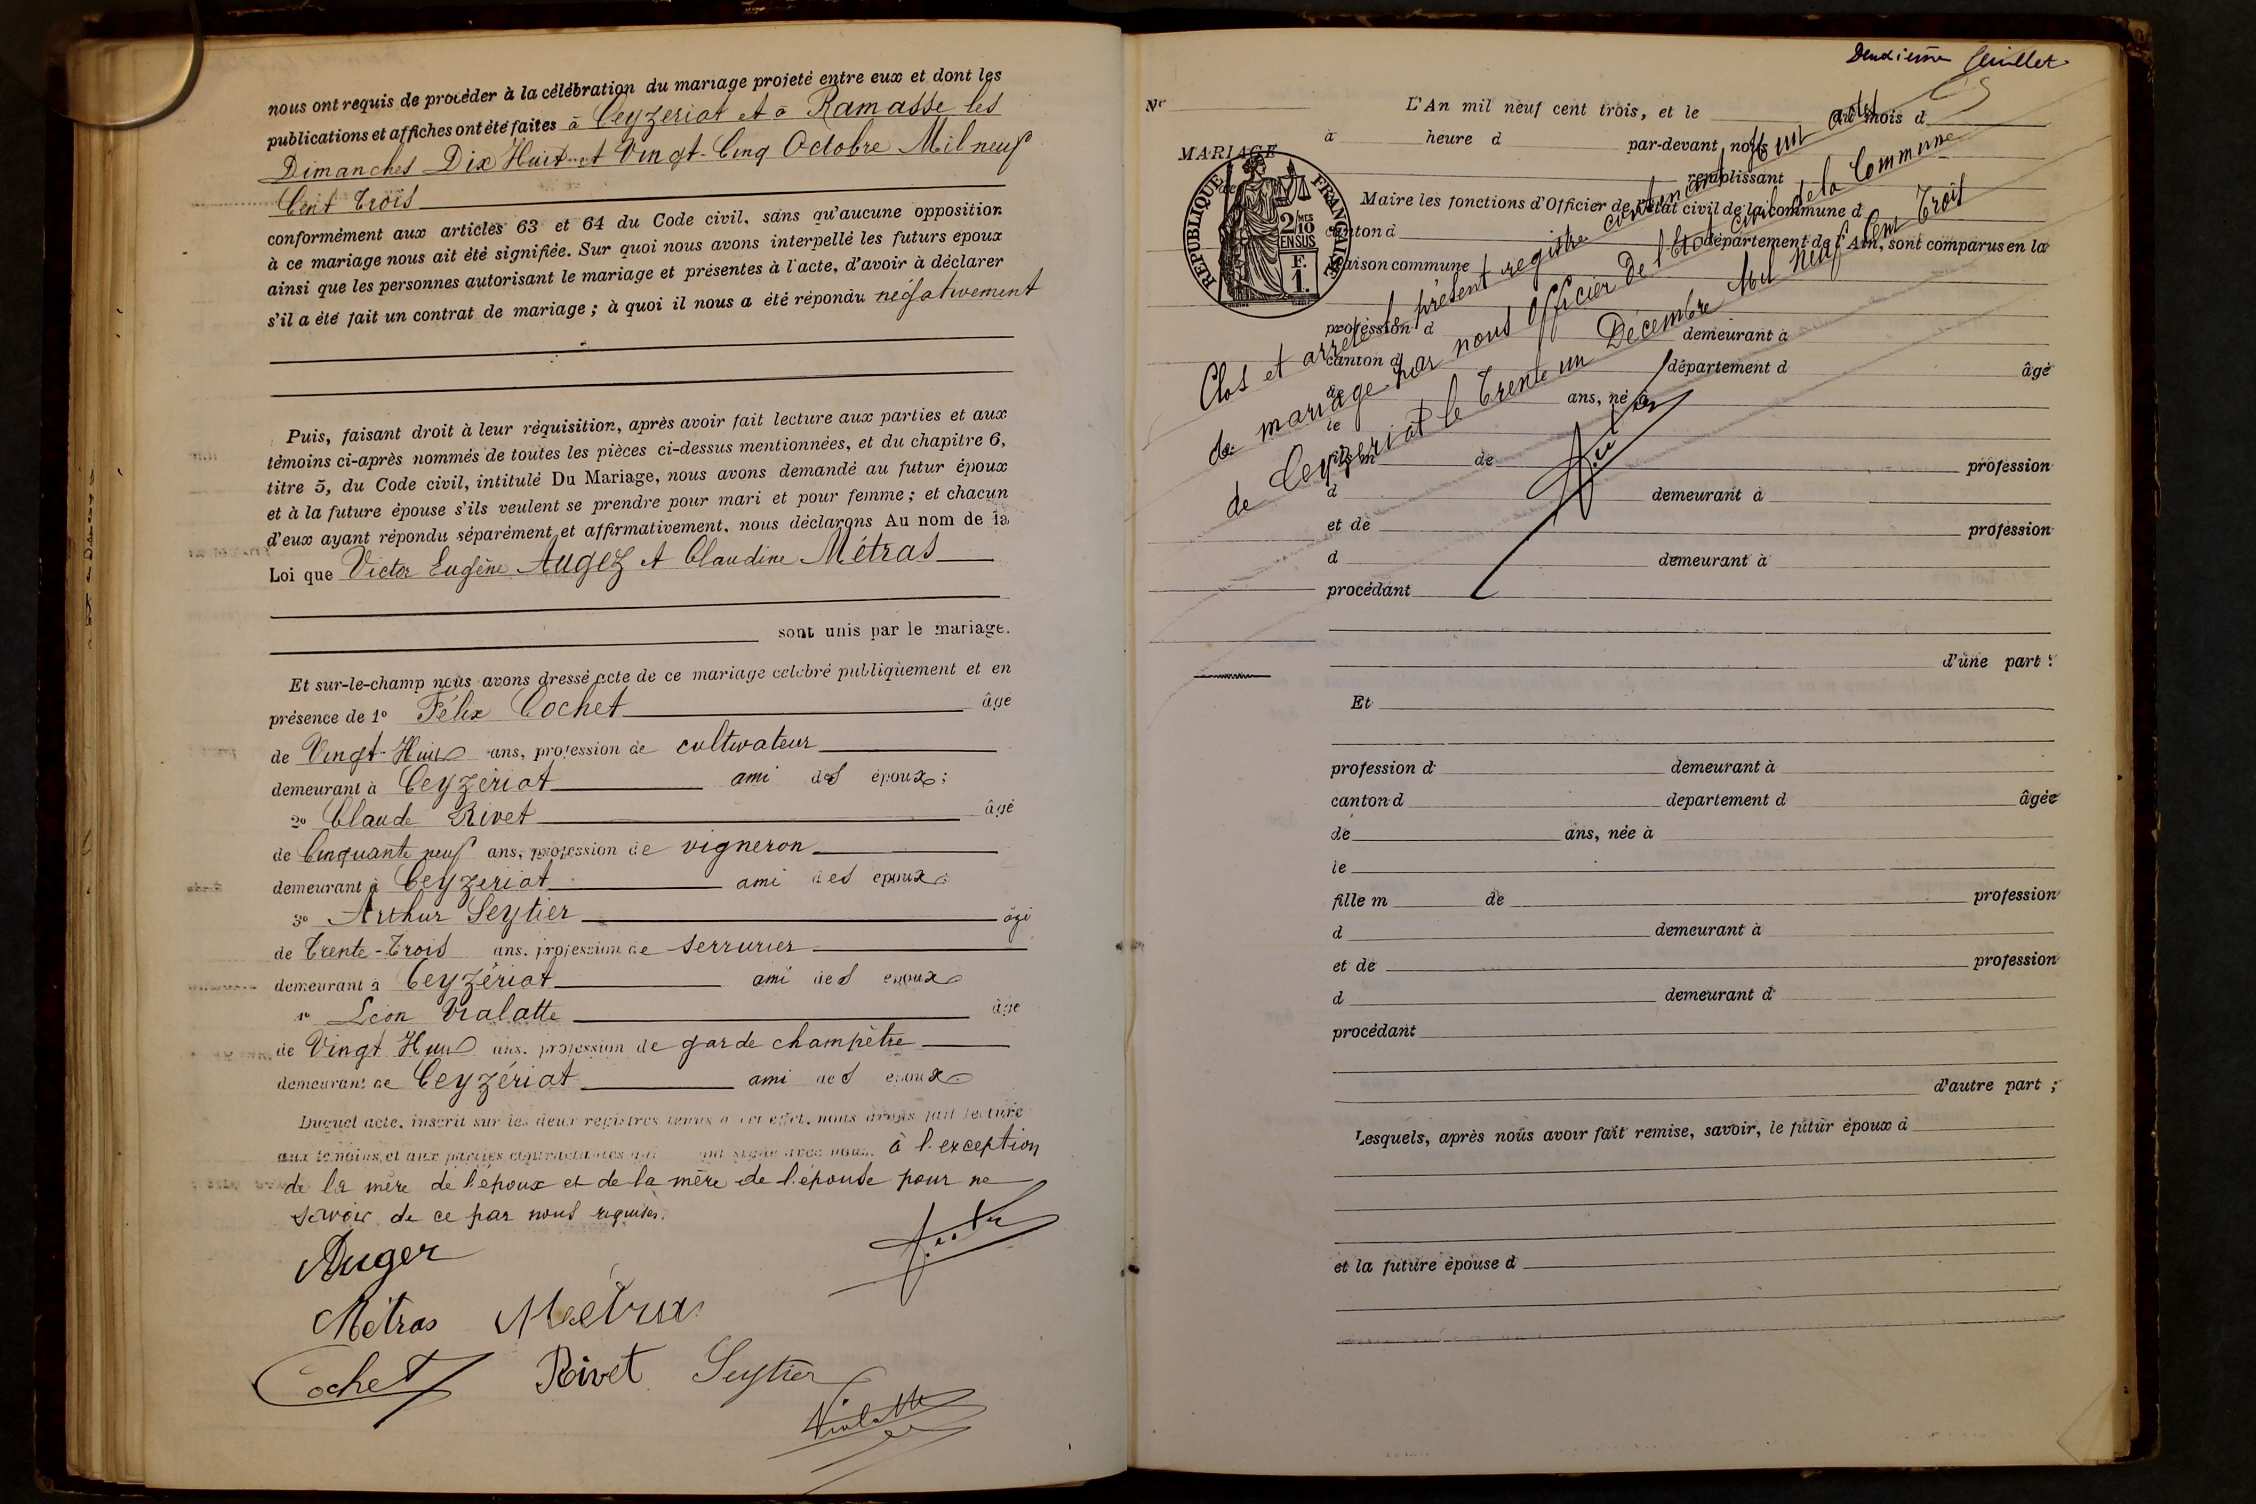 nous ont requis de procéder à la célébration du mariage projeté entre eux et dont les
publications et affiches ont été faites à Ceyzeriat et à Ramasse les
Dimanches Dix Huit et Vingt-Cinq Octobre Mil neuf
Cent Trois
conformément aux articles 63 et 64 du Code civil, sans qu'aucune opposition
à ce mariage nous ait été signifiée. Sur quoi nous avons interpellé les futurs époux
ainsi que les personnes autorisant le mariage et présentes à l'acte, d'avoir à déclarer
s'il a été fait un contrat de mariage ; à quoi il nous a été répondu négativement
Puis, faisant droit à leur réquisition, après avoir fait lecture aux parties et aux
témoins ci-après nommés de toutes les pièces ci-dessus mentionnées, et du chapitre 6,
titre 5, du Code civil, intitulé Du Mariage, nous avons demandé au futur époux
et à la future épouse s'ils veulent se prendre pour mari et pour femme ; et chacun
d'eux ayant répondu séparément et affirmativement, nous déclarons Au nom de la
Loi que Victor Eugène Augez et Claudine Métras
sont unis par le mariage.
Et sur-le-champ nous avons dressé acte de ce mariage célébré publiquement et en
présence de 1º Félix Cochet âgé
de Vingt-Huit ans, profession de cultivateur
demeurant à Ceyzériat ami des époux ;
2º Claude Rivet âgé
de Cinquante neuf ans, profession de vigneron
demeurant à Ceyzeriat ami des époux ;
3º Arthur Seytier âgé
de Trente-Trois ans, profession de serrurier
demeurant à Ceyzériat ami des époux
4º Léon Vialatte âgé
de Vingt Huit ans, profession de garde champêtre
demeurant de Ceyzériat ami des époux
Duquel acte, inscrit sur les deux registres tenus à cet effet, nous avons fait lecture
aux témoins, et aux parties contractantes qui ont signé avec nous. à l'exception
de la mère de l'époux et de la mère de l'épouse pour ne
savoir de ce par nous requises.
Auger
Métras Métras
Cochet Rivet Seytier
Vialatte
Deuxième feuillet
Nº
L'An mil neuf cent trois, et le du mois d
à heure d par-devant nous
MARIAGE
de
remplissant
Maire les fonctions d'Officier de l'état civil de la commune d
canton d département de l'Ain, sont comparus en la
maison commune
RÉPUBLIQUE FRANÇAISE
2/10 MES
EN SUS
F.
1.
Clos et arrêté le présent registre contenant
de mariage par nous Officier de l'Etat civil de la Commune
de Ceyzeriat le Trente un Décembre Mil neuf Cent Trois
profession d demeurant à
canton d département d âgé
de ans, né à
le
fils m de profession
d demeurant à
et de profession
d demeurant à
procédant
d'une part :
Et
profession d demeurant à
canton d département d âgée
de ans, née à
le
fille m de profession
d demeurant à
et de profession
d demeurant d
procédant
d'autre part ;
Lesquels, après nous avoir fait remise, savoir, le futur époux d
et la future épouse d